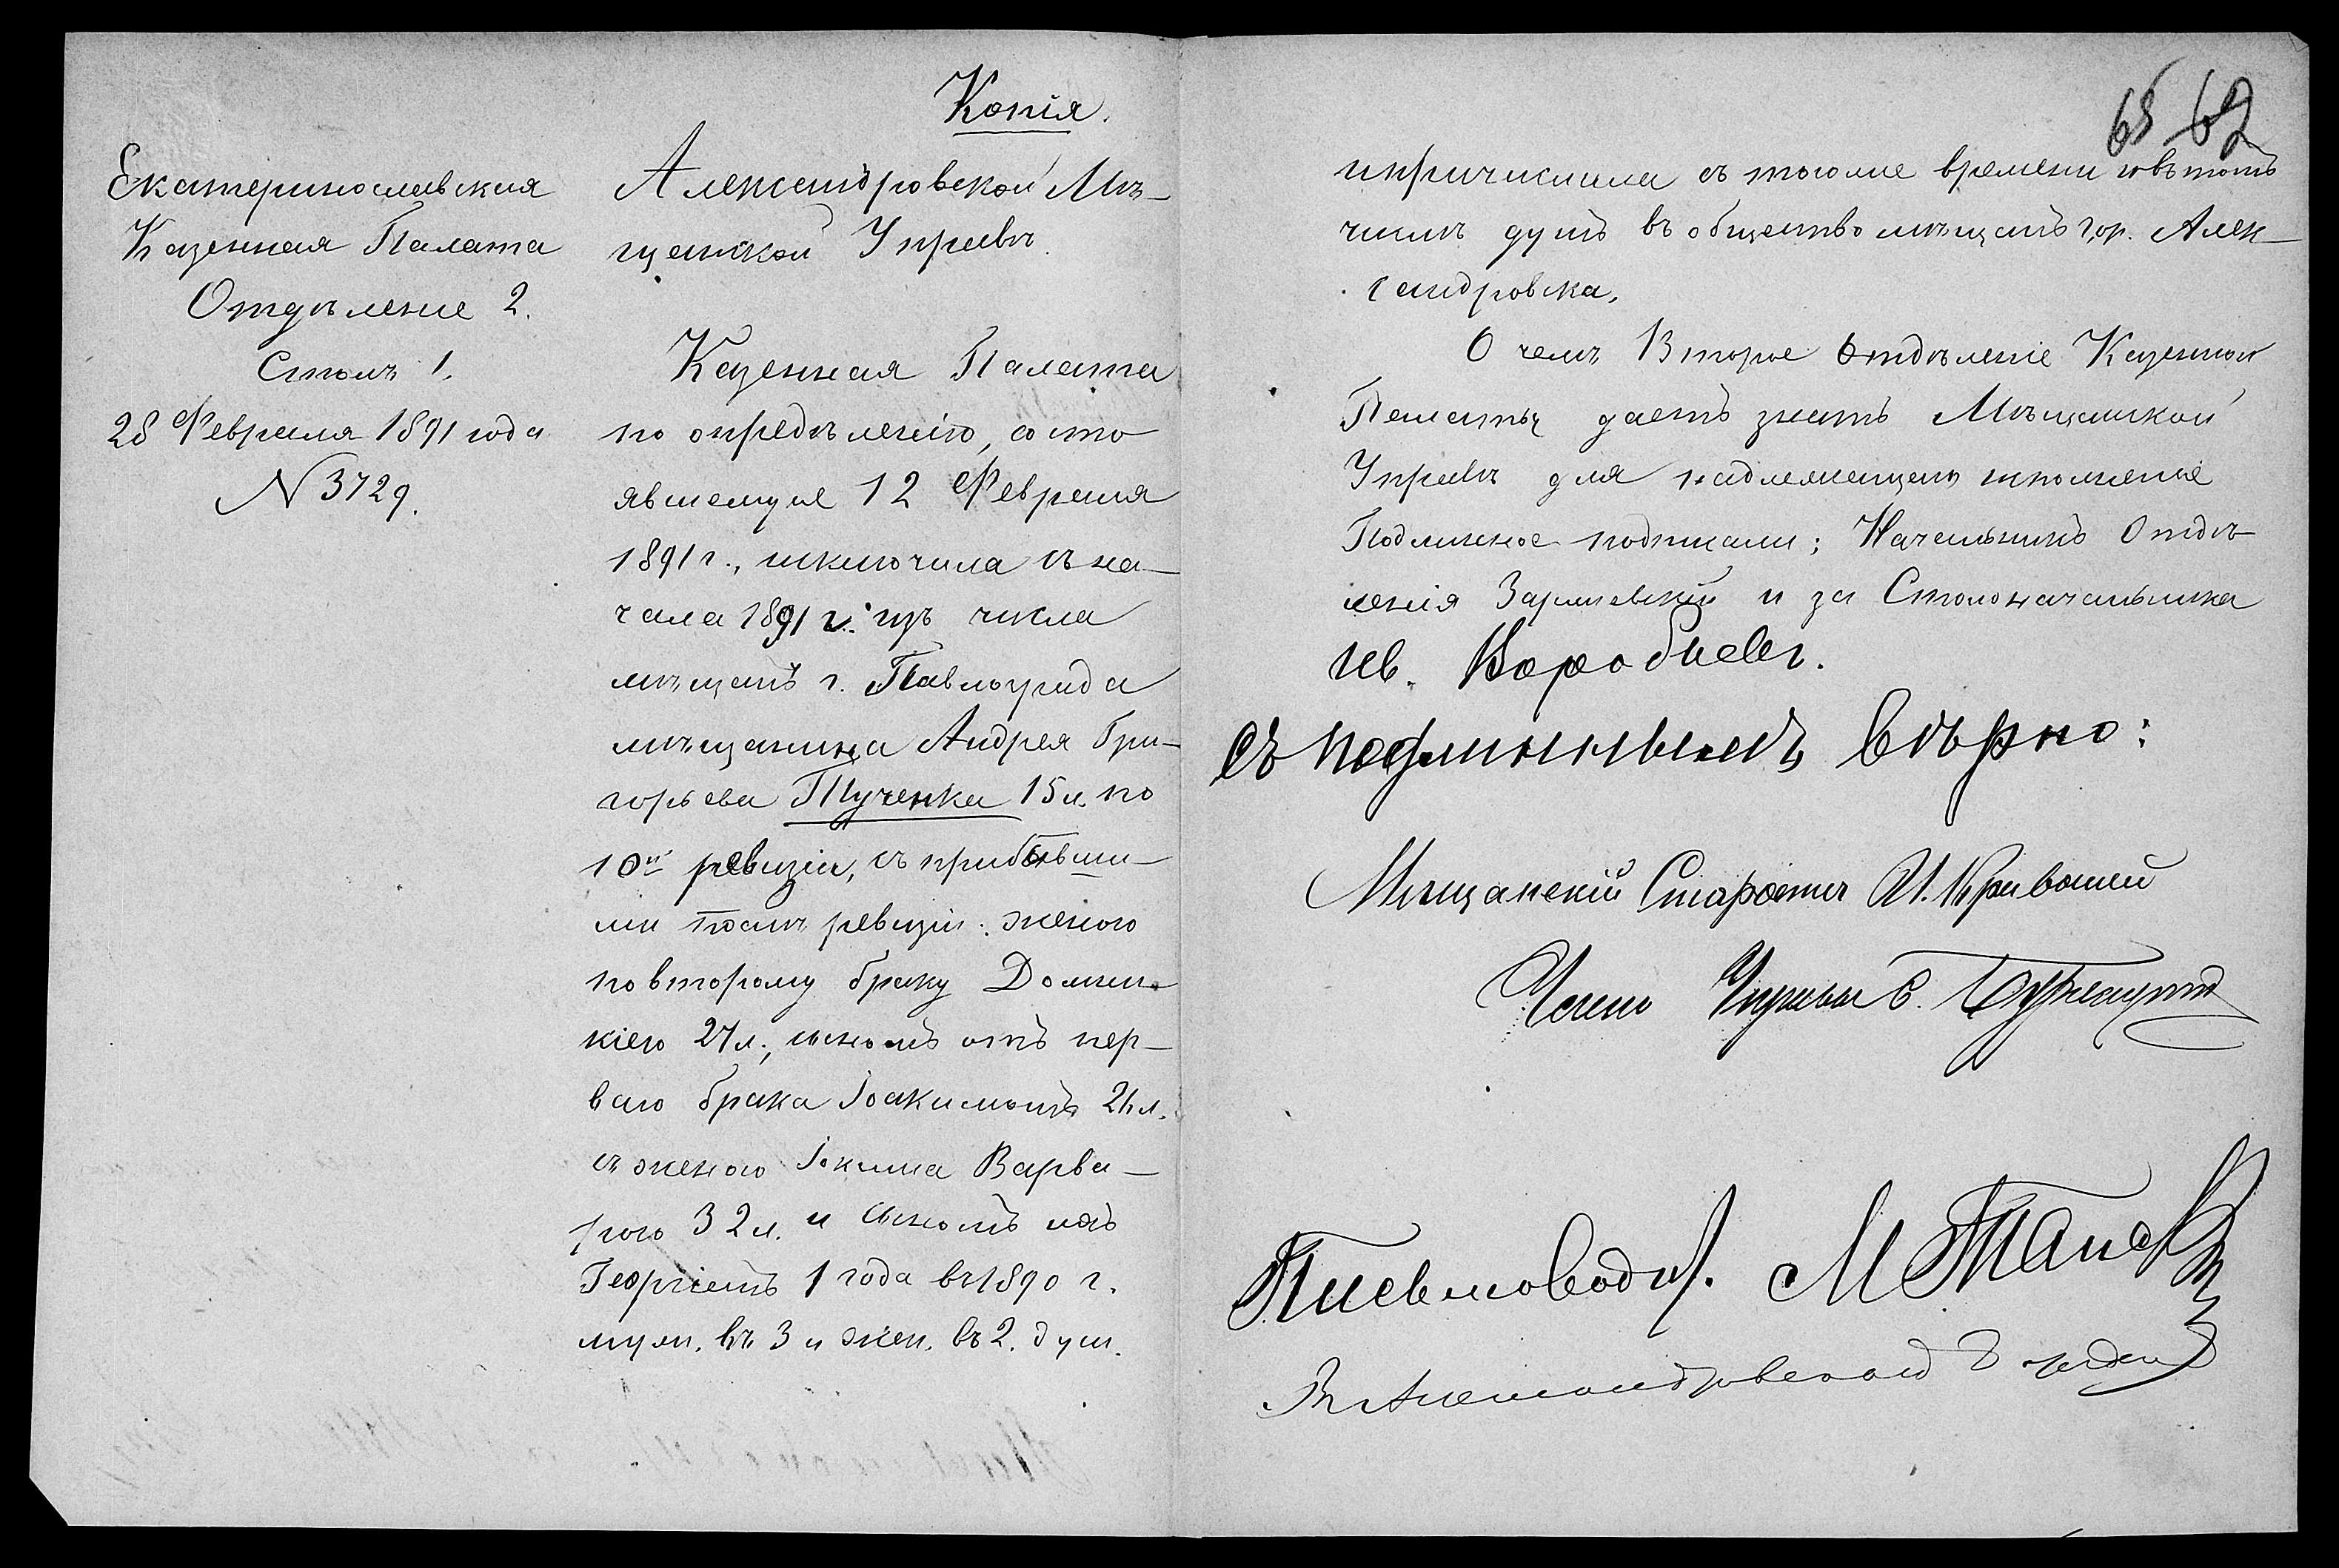 Копія.
Екатеринославская
Казенная Палата
Отдѣленіе 2.
Столъ 1.
28 Февраля 1891 года
N 3729.
Александровской Мѣ-
щанской Управѣ.
Казенная Палата
по опредѣленію, состо
явшемуся 12 Февраля
1891 г., исключила съ на-
чала 1891 г. изъ числа
мѣщанъ г. Павлограда
мѣщанина Андрея Гри-
горьева Тученка 15 л. по
10й ревизіи, съ прибывши-
ми послѣ ревизіи: женою
по второму браку Домни-
кіею 27 л., сыномъ отъ пер-
ваго брака Іоакимомъ 21 л.
съ женою Іакима Варва-
рою 32 л. и сыномъ ихъ
Георгіемъ 1 года въ 1890 г.
муж. въ 3 и жен. въ 2. душ.
65 62
и причислила съ того же времени и въ томъ
числѣ душъ въ общество мѣщанъ гор. Алек-
сандровска.
О чемъ Второе Отдѣленіе Казенной
Палаты даетъ знать Мѣщанской
Управѣ для надлежащаго исполненія
Подлинное подписали: Начальникъ Отдѣ-
ленія и за Столоначальника
Ив. Воробьевъ.
Съ подлиннымъ вѣрно:
Мѣщанскій Староста И. Кривошей
Членъ Управы
Письмоводит. М